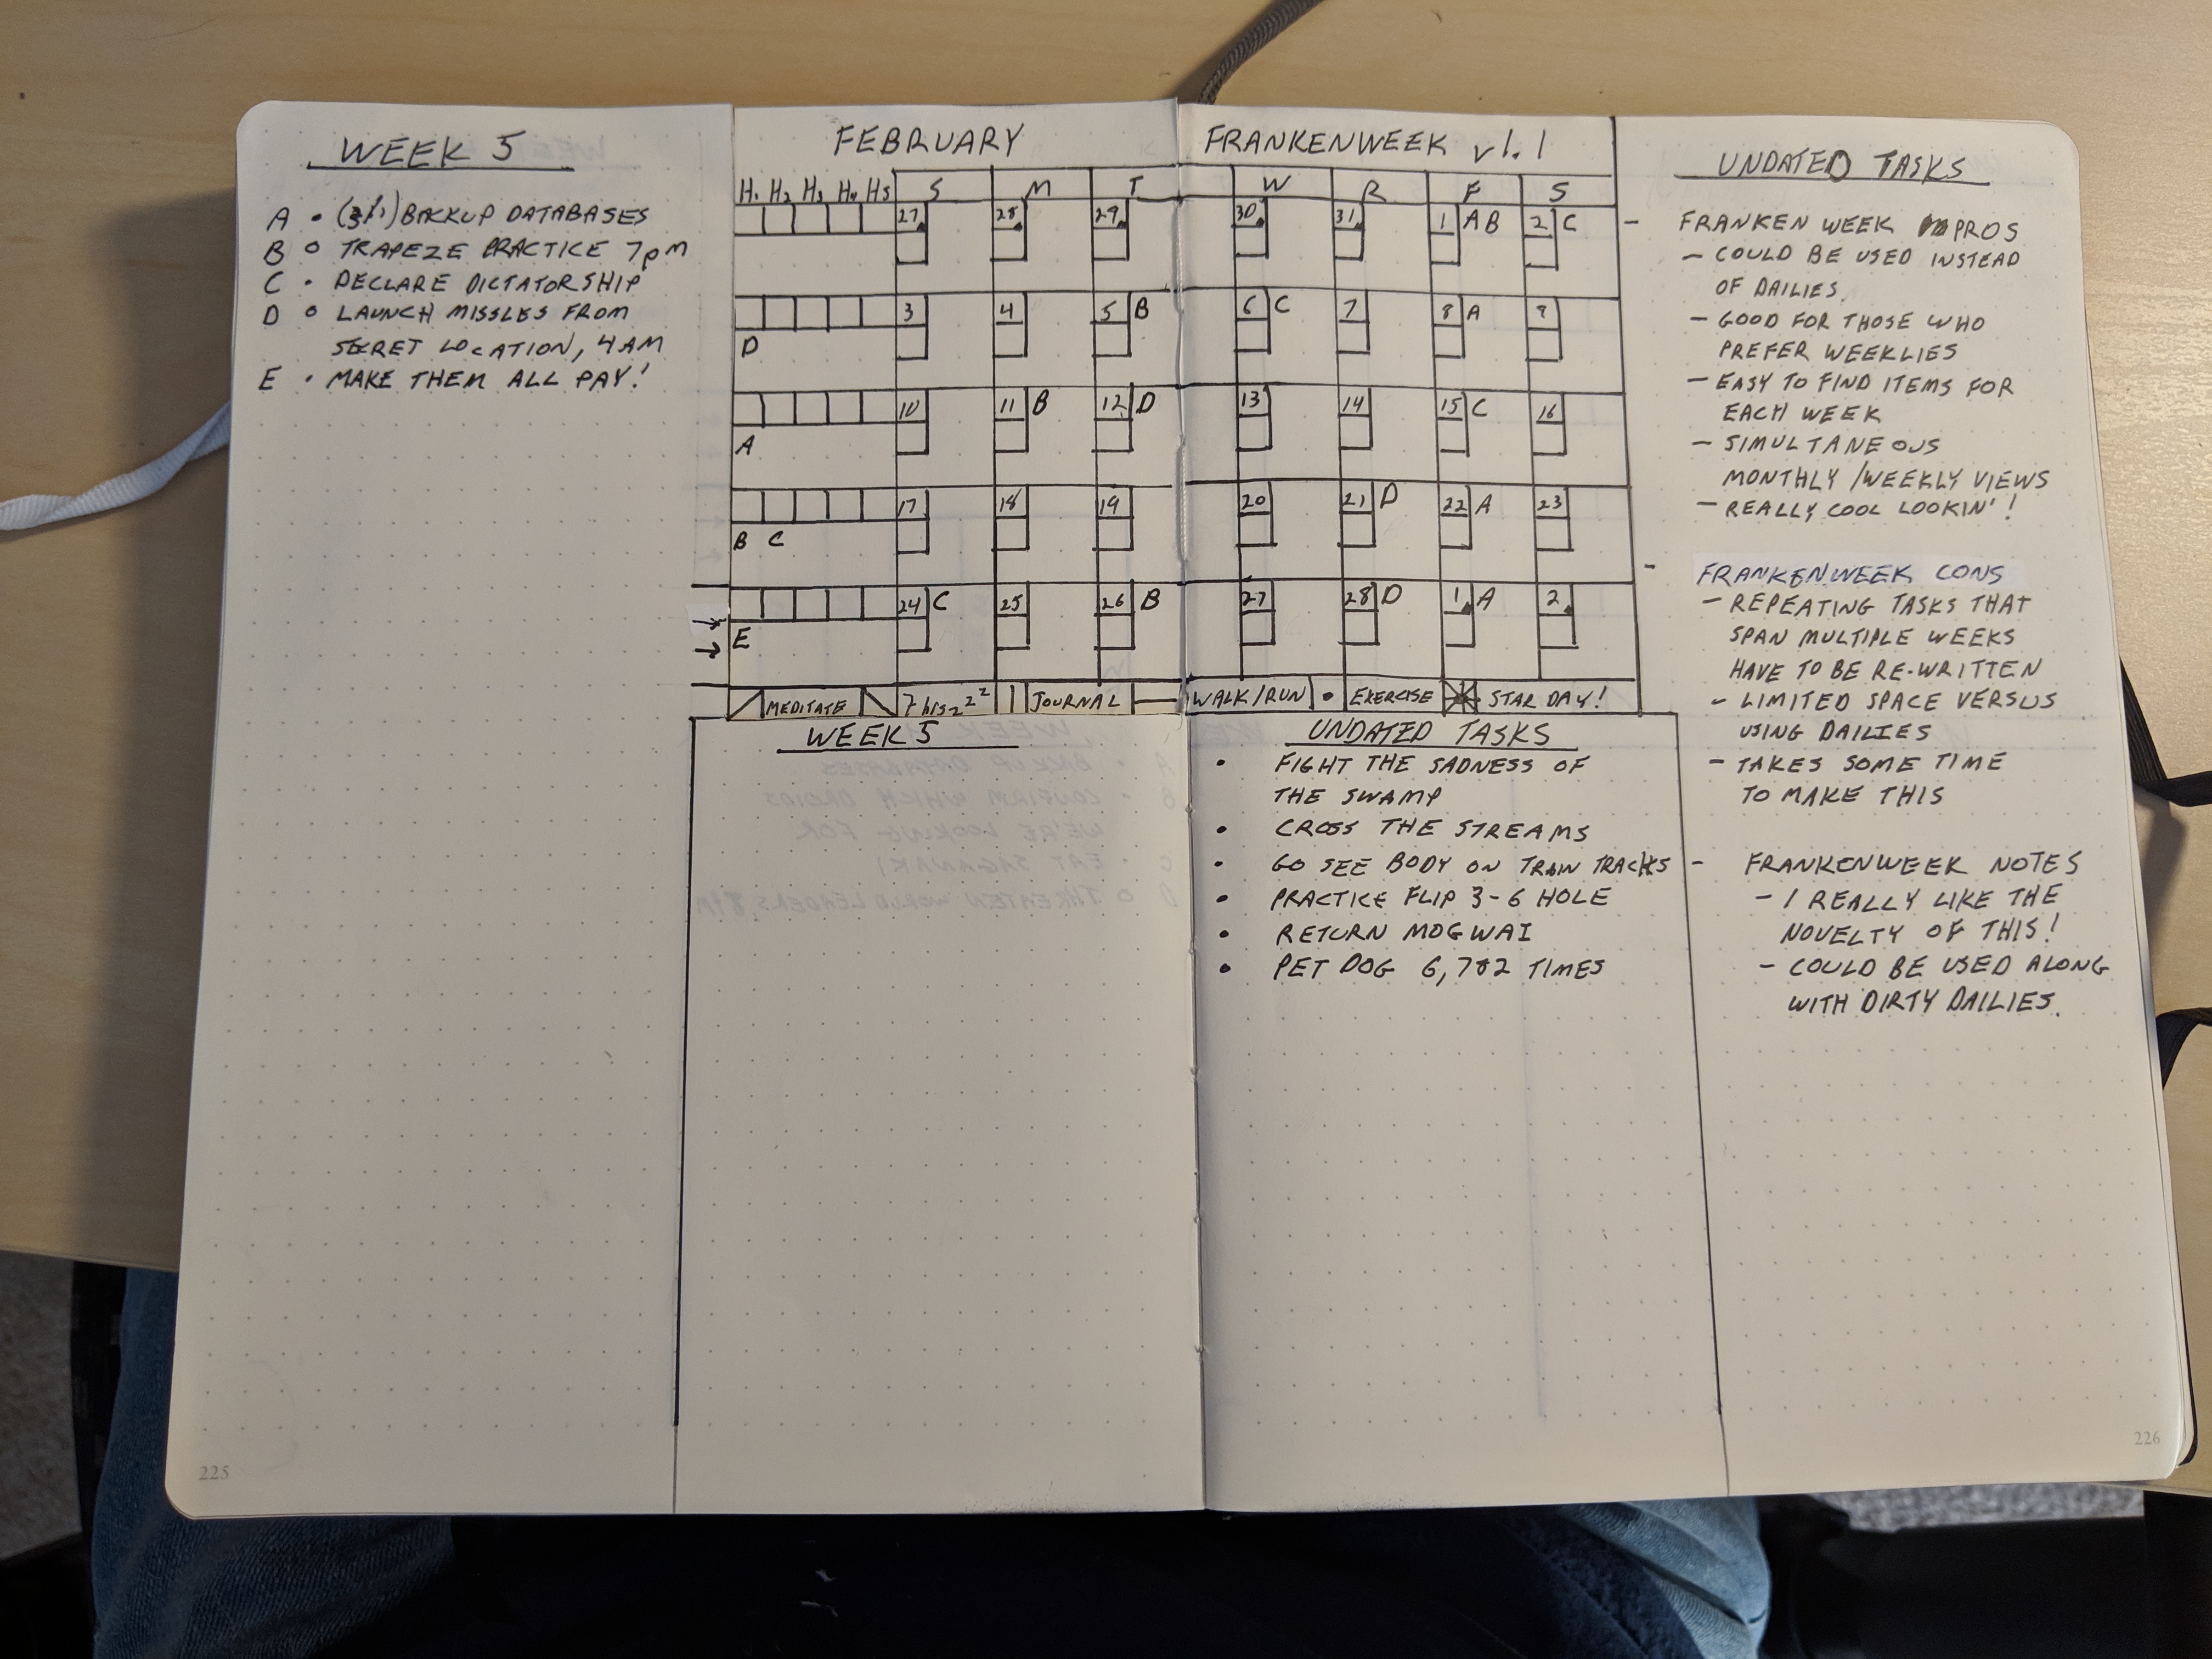 WEEK 5
A • (3/1) BACKUP DATABASES
B o TRAPEZE PRACTICE 7pM
C • DECLARE DICTATORSHIP
D o LAUNCH MISSLES FROM
SECRET LOCATION, 4AM
E • MAKE THEM ALL PAY!
225
FEBRUARY
H1 H2 H3 H4 H5 S M T
27 28 29
3 4 5 B
D
10 11 B 12 D
A
17 18 19
B C
24 C 25 26 B
→
→ E
MEDITATE 7 hrs zzz JOURNAL
WEEK 5
FRANKENWEEK v1.1
W R F S
30 31 1 AB 2 C
6 C 7 8 A 9
13 14 15 C 16
20 21 D 22 A 23
27 28 D 1 A 2
WALK/RUN • EXERCISE STAR DAY!
UNDATED TASKS
• FIGHT THE SADNESS OF
THE SWAMP
• CROSS THE STREAMS
• GO SEE BODY ON TRAIN TRACKS
• PRACTICE FLIP 3-6 HOLE
• RETURN MOGWAI
• PET DOG 6,782 TIMES
UNDATED TASKS
- FRANKEN WEEK PROS
- COULD BE USED INSTEAD
OF DAILIES.
- GOOD FOR THOSE WHO
PREFER WEEKLIES
- EASY TO FIND ITEMS FOR
EACH WEEK
- SIMULTANEOUS
MONTHLY/WEEKLY VIEWS
- REALLY COOL LOOKIN'!
- FRANKENWEEK CONS
- REPEATING TASKS THAT
SPAN MULTIPLE WEEKS
HAVE TO BE RE-WRITTEN
- LIMITED SPACE VERSUS
USING DAILIES
- TAKES SOME TIME
TO MAKE THIS
- FRANKENWEEK NOTES
- I REALLY LIKE THE
NOVELTY OF THIS!
- COULD BE USED ALONG
WITH DIRTY DAILIES.
226